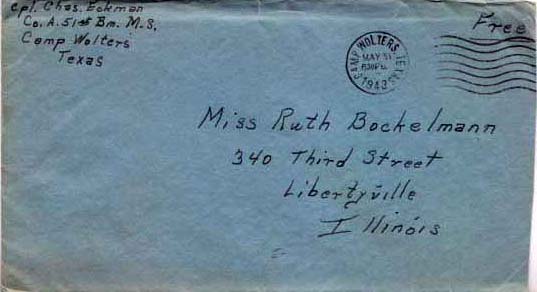 Cpl. Chas. Eckman
Co. A. 51st Bn. M.S.
Camp Wolters
Texas
Free
CAMP WOLTERS, TEX.
MAY 31
1943
Miss Ruth Bockelmann
340 Third Street
Libertyville
Illinois